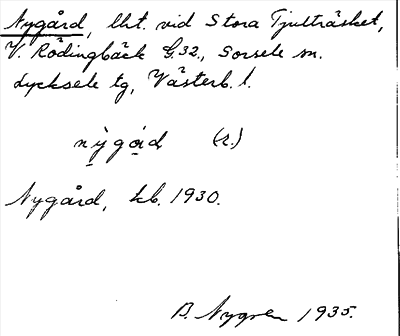 Nygård, lht. vid Stora Tjulträsket,
V. Rödingbäck G.32., Sorsele sn.
Lycksele tg, Västerb. l.
nỳgárd (r.)
Nygård, kb. 1930.
B. Nygren 1935.